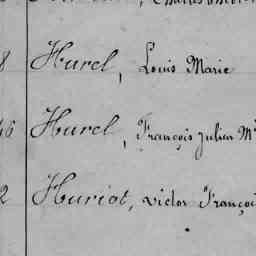 8 Hurel, Louis Marie
46 Hurel, François Julien M
2 Huriot, Victor Françoi